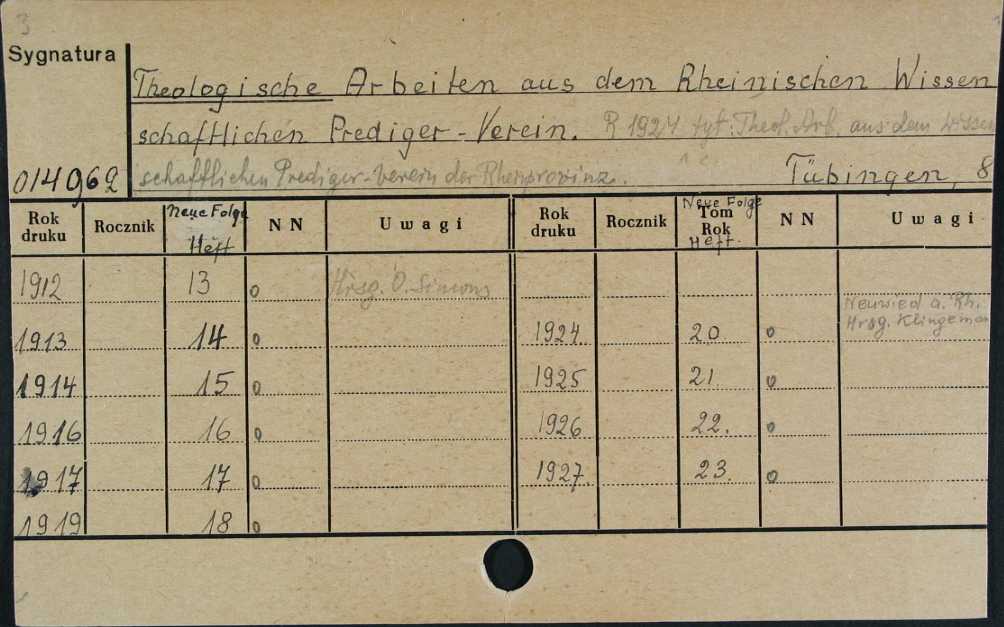 3
Sygnatura
Theologische Arbeiten aus dem Rheinischen Wissen
schaftlichen Prediger-Verein. R 1924 tyt: Theol. Arb. aus dem Wissen
014962 schaftlichen Prediger-Verein der Rheinprovinz. Tübingen, 8
Rok druku Rocznik Neue Folge Heft NN Uwagi Rok druku Rocznik Neue Folge Tom Rok Heft. NN Uwagi
1912 13 0 Hrsg. O. Simons
Neuwied a. Rh.
Hrsg. Klingeman
1913 14 0 1924 20 0
1914 15 0 1925 21 0
1916 16 0 1926 22. 0
1917 17 0 1927. 23. 0
1919 18 0